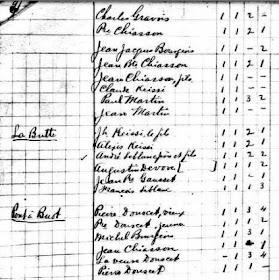 Charles Gravois 1 1 2 -
Pre Chiasson 1 1 2 1
Jean Jacques Bourgeois 1 1 - 2
Jean Bte Chiasson 1 1 2 1
Jean Chiasson, fils
Claude Keissi
Paul Martin 1 1 3 2
Jean Martin 1 1
La Butte Jh Keissi le fils 1 1 2 1
Alexis Keissi 1 1 2
André et fils 1 1 2 2
Augustin Devon 1 1
Jean Pre 1 1
François Leblanc 1 1 3
Pont à Buot Pierre Doucet, vieux 1 1 3 4
Pre Doucet, jeune 1 1 2
Michel Bourgeois 1 1 3
Jean Chiasson 1 1
La veuve Doucet - 1 3 4
Pierre Doucet 1 1